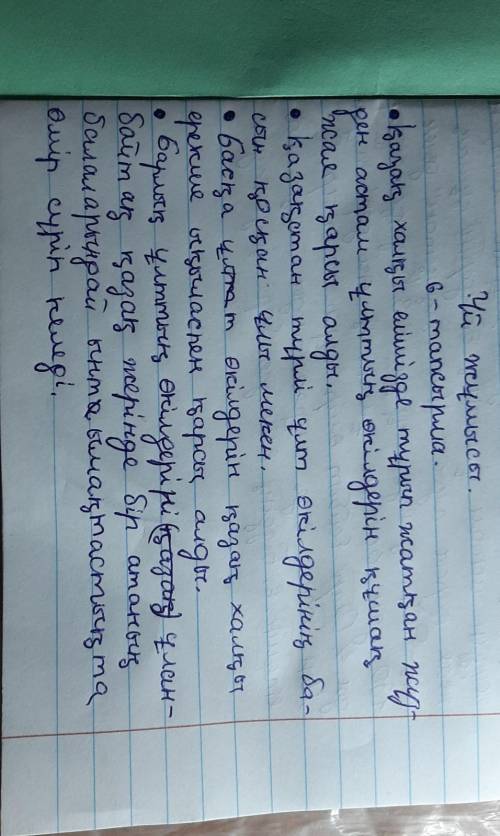 Үй жұмысы.
6-тапсырма.
• Қазақ халқы елімізде тұрып жатқан жүз-
ден астам ұлттың өкілдерін құшақ
жае қарсы алды.
• Қазақстан түрлі ұлт өкілдерінің ба-
сын қосқан ұлы мекен.
• Басқа ұлтат өкілдерін қазақ халқы
ерекше ықыласпен қарсы алды.
• Барлық ұлттың өкілдеріні (қазақ) ұлан-
байтақ қазақ жерінде бір атаның
балаларындай ынтымақтастықта
өмір сүріп келеді.